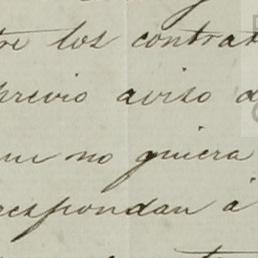 tre los contrat
previo aviso d
que no quiera
respondan á